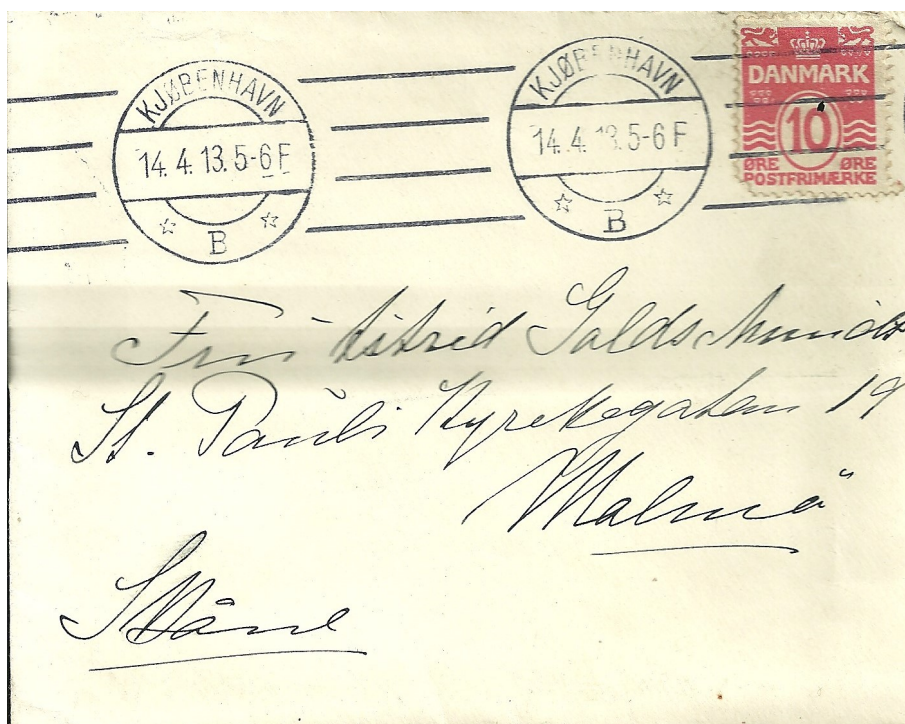 KJØBENHAVN
14.4.13.5-6 F
B
KJØBENHAVN
14.4.13.5-6 F
B
DANMARK
10
ØRE ØRE
POSTFRIMÆRKE
Fru Astrid Goldschmidt
St. Pauli Kyrkogatan 19
Malmö
Skåne